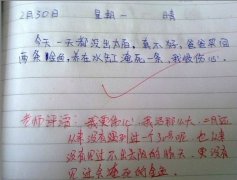 2月30日 星期一 晴
今天一天都没出太阳，真不好，爸爸买回
两条金鱼，养在水缸淹死一条，我很伤心。
老师评语：我更伤心，我活那么大，二月还
从来没有碰到过一个30号呢，也从来
没有见过不出太阳的晴天，更没有
见过会淹死的金鱼。